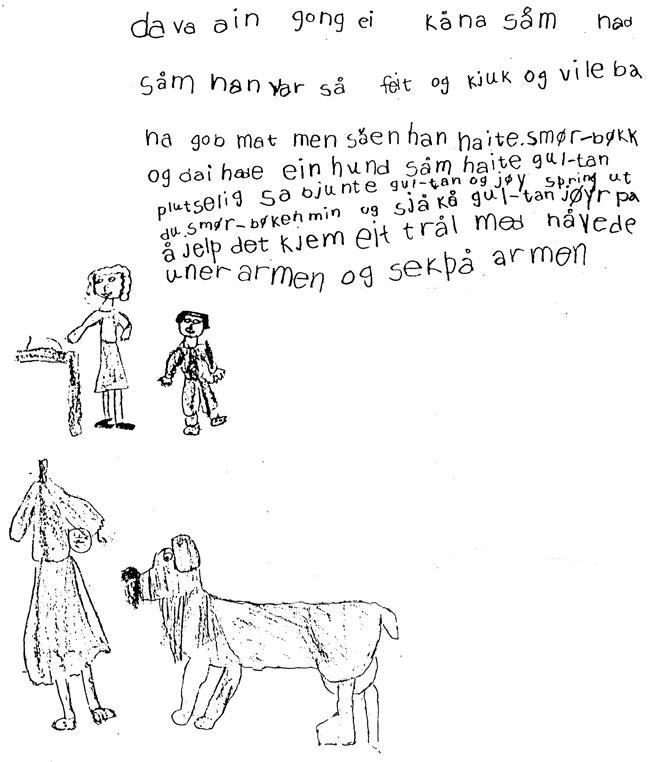 da va ain gong ei kåna såm had
såm han var så feit og kjuk og vile ba
ha gob mat men såen han haite.smør-bøkk
og dai hade ein hund såm haite gul-tan
plutselig sa bjunte gul-tan og jøy spring ut
du.smør-bøken min og sjå kå gul-tan jøyr pa
å jelp det kjem eit trål med håvede
uner armen og sekpå armen